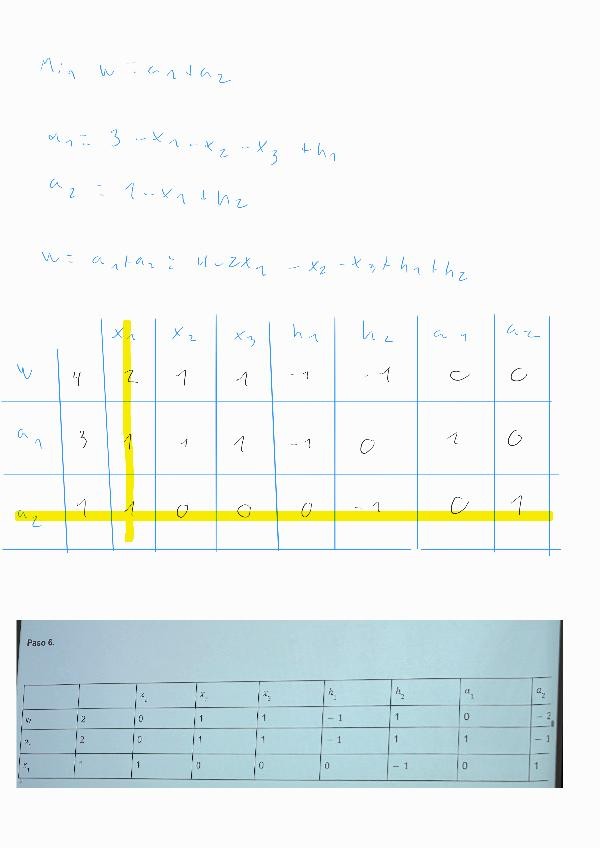 Min w = a1 + a2
a1 = 3 - x1 - x2 - x3 + h1
a2 = 1 - x1 + h2
w = a1 + a2 = 4 - 2x1 - x2 - x3 + h1 + h2
x1 x2 x3 h1 h2 a1 a2
w 4 2 1 1 -1 -1 0 0
a1 3 1 1 1 -1 0 1 0
a2 1 1 0 0 0 -1 0 1
Paso 6.
h2 a1 a2
2 0 1 1 -1 1 0 -2
2 0 1 1 -1 1 1 -1
x1 1 0 0 0 -1 0 1